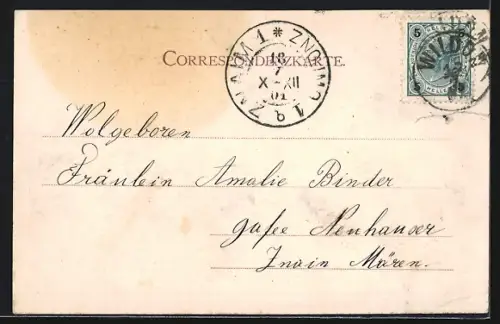 CORRESPONDENZKARTE.
ZNAIM 1 * ZNOJMO 1 a
18
7
X-XII
01
5 5
WILDON
Wolgeboren
Fräulein Amalie Binder
gasse Neuhauser
Znain Mären.